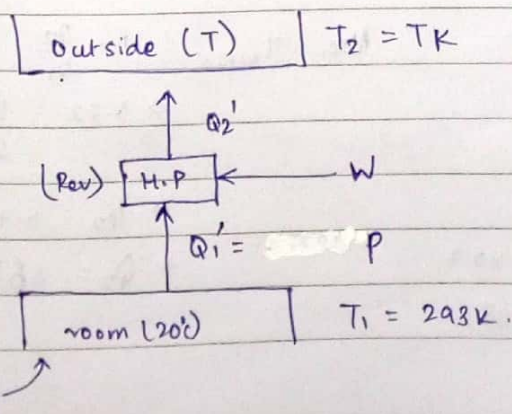 outside (T) T2 = TK
Q2'
(Rev) H.P W
Q1' = P
room (20°c) T1 = 293K.